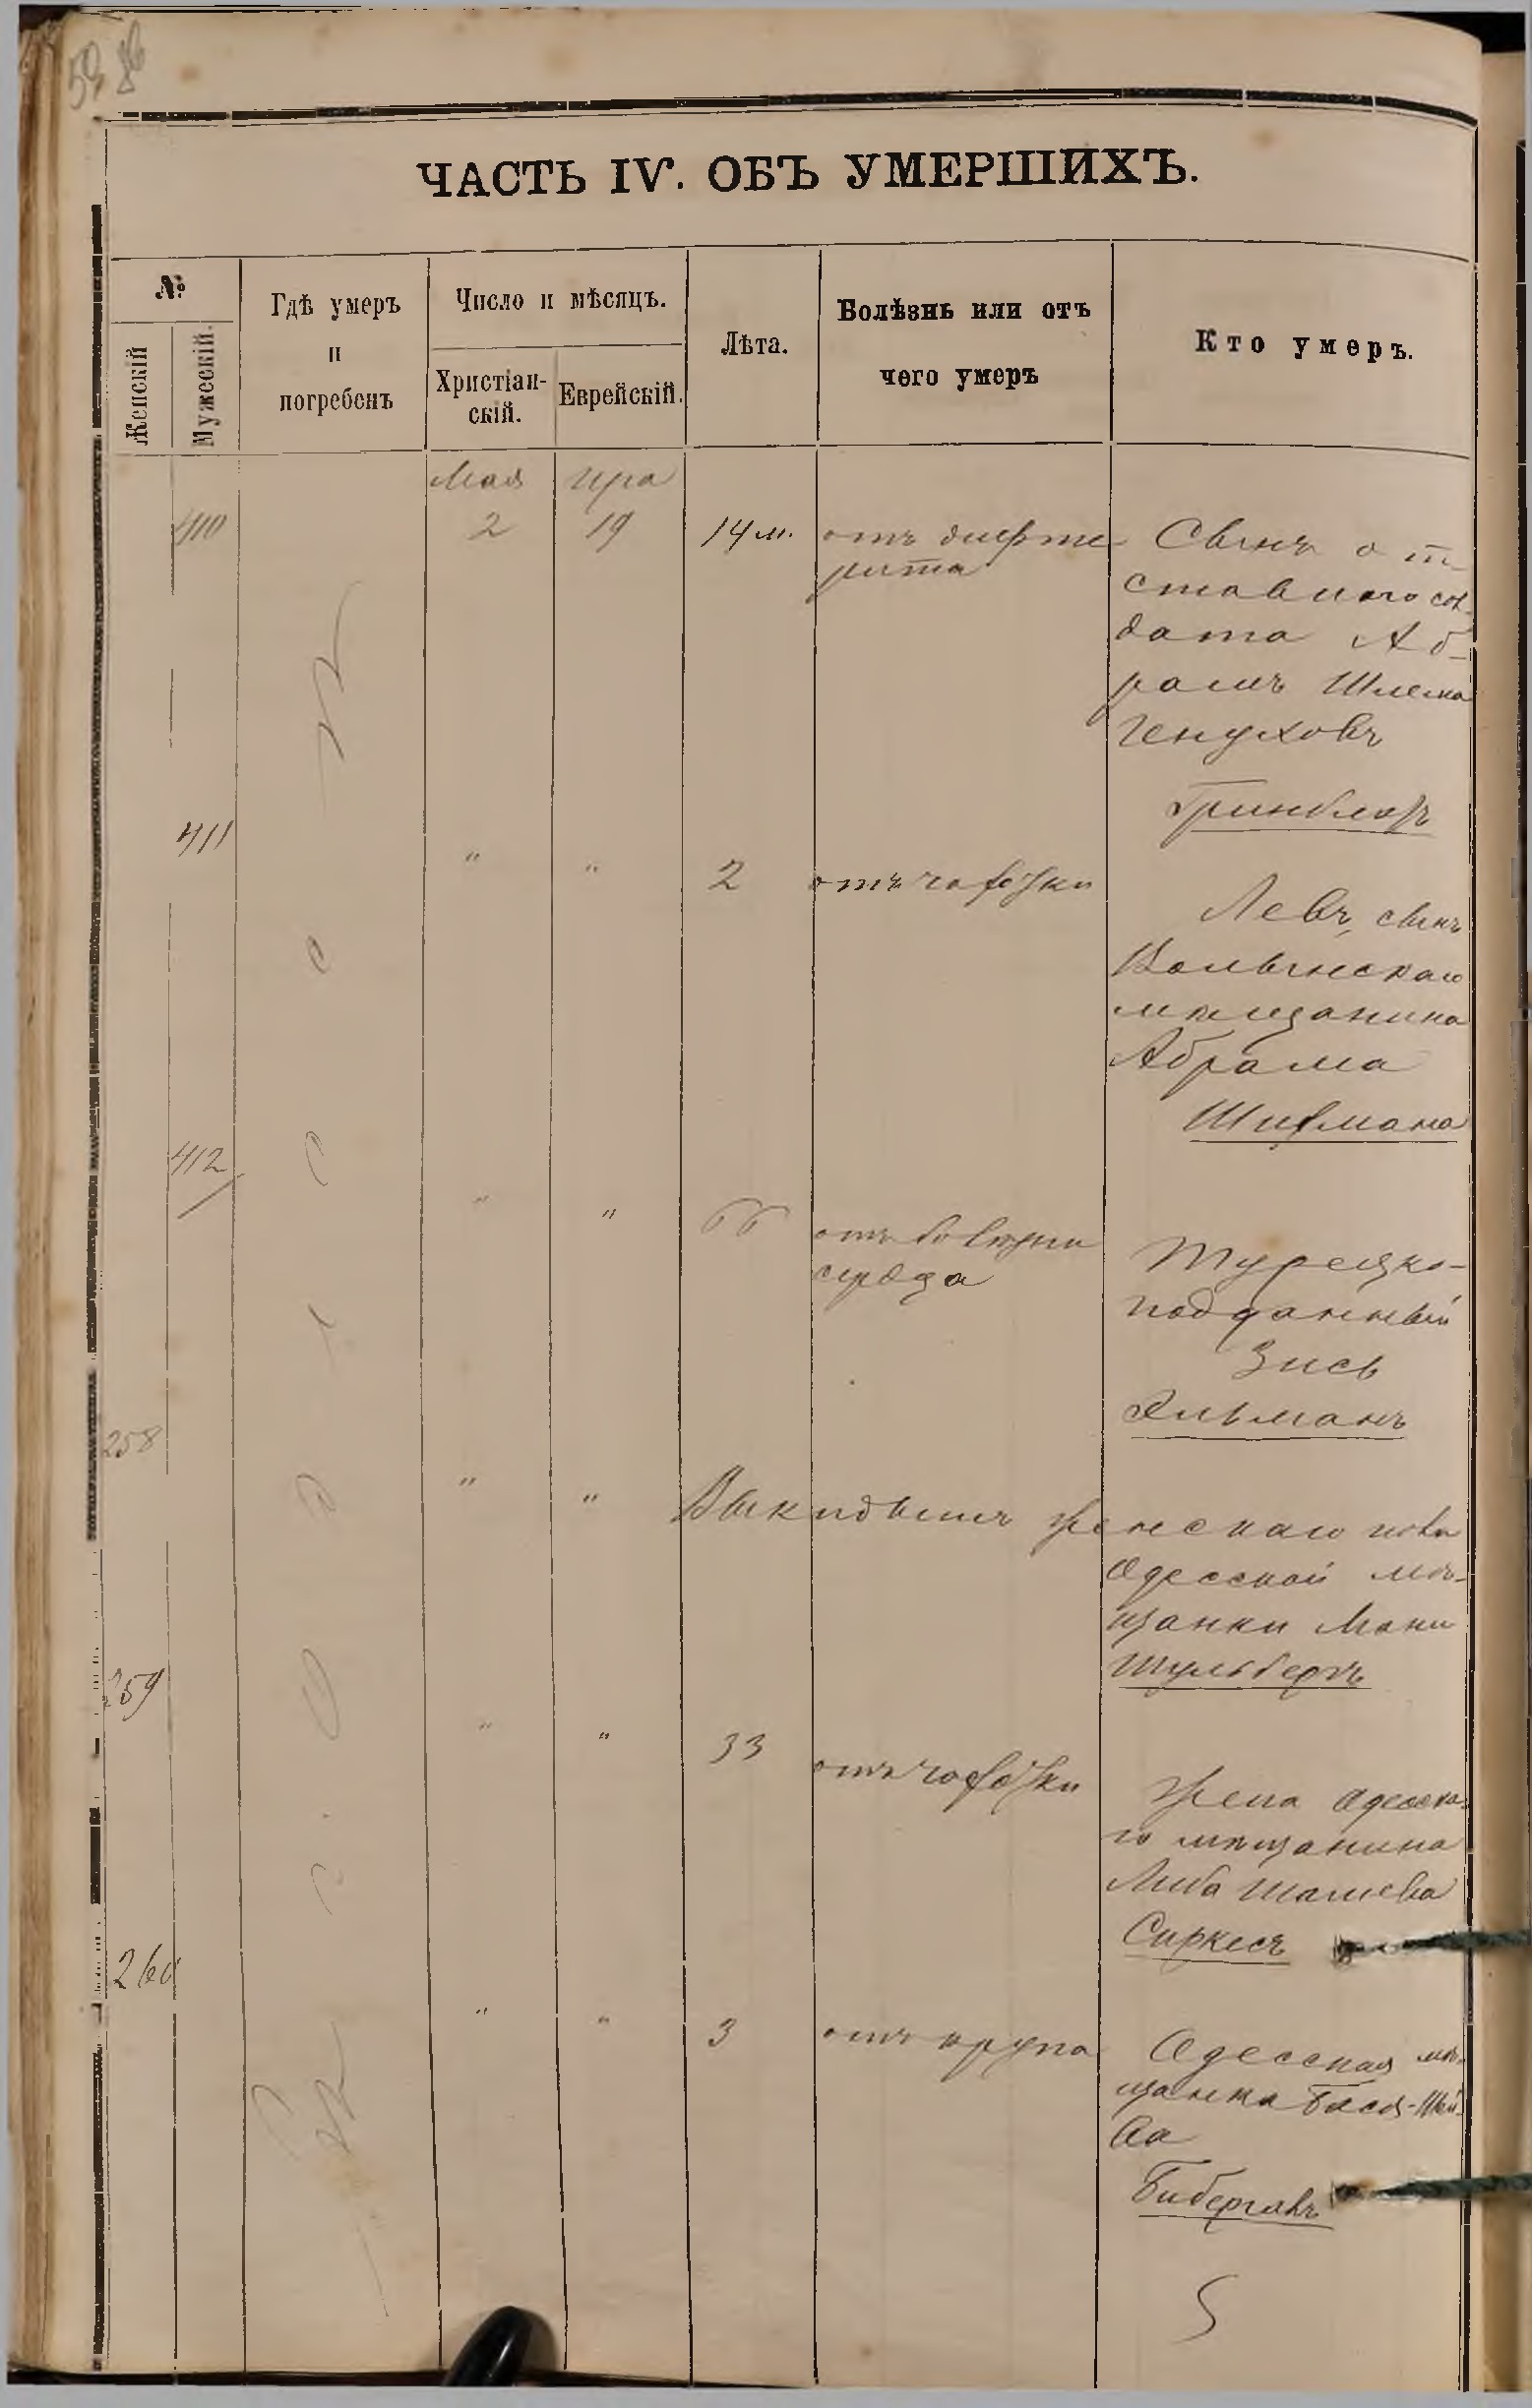 59 86
ЧАСТЬ IV. ОБЪ УМЕРШИХЪ.
№
Женскій
Мужескій.
Гдѣ умеръ
и
погребенъ
Число и мѣсяцъ.
Христіан-
скій.
Еврейскій.
Лѣта.
Болѣзнь или отъ
чего умеръ
Кто умеръ.
Мая Ира
410 2 19 14 м. отъ дифте-
рита
Сынъ от-
ставного сол-
дата Аб-
рамъ Шлема
Генуховъ
Гринблатъ
411 " " 2 отъ чахотки
Левъ, сынъ
Волынскаго
мѣщанина
Абрама
Шифмана
412 " " 66 отъ болѣзни
сердца
Турецко-
подданный
Зись
Альманъ
258 " " Выкидышъ женскаго пола
Одесской мѣ-
щанки Мани
Шульбергъ
259 " " 33 отъ чахотки
Жена Одесска-
го мѣщанина
Либа
Сиркесъ
260 " " 3 отъ крупа
Одесская мѣ-
щанка Бася-Шей-
ва
Бибергалъ